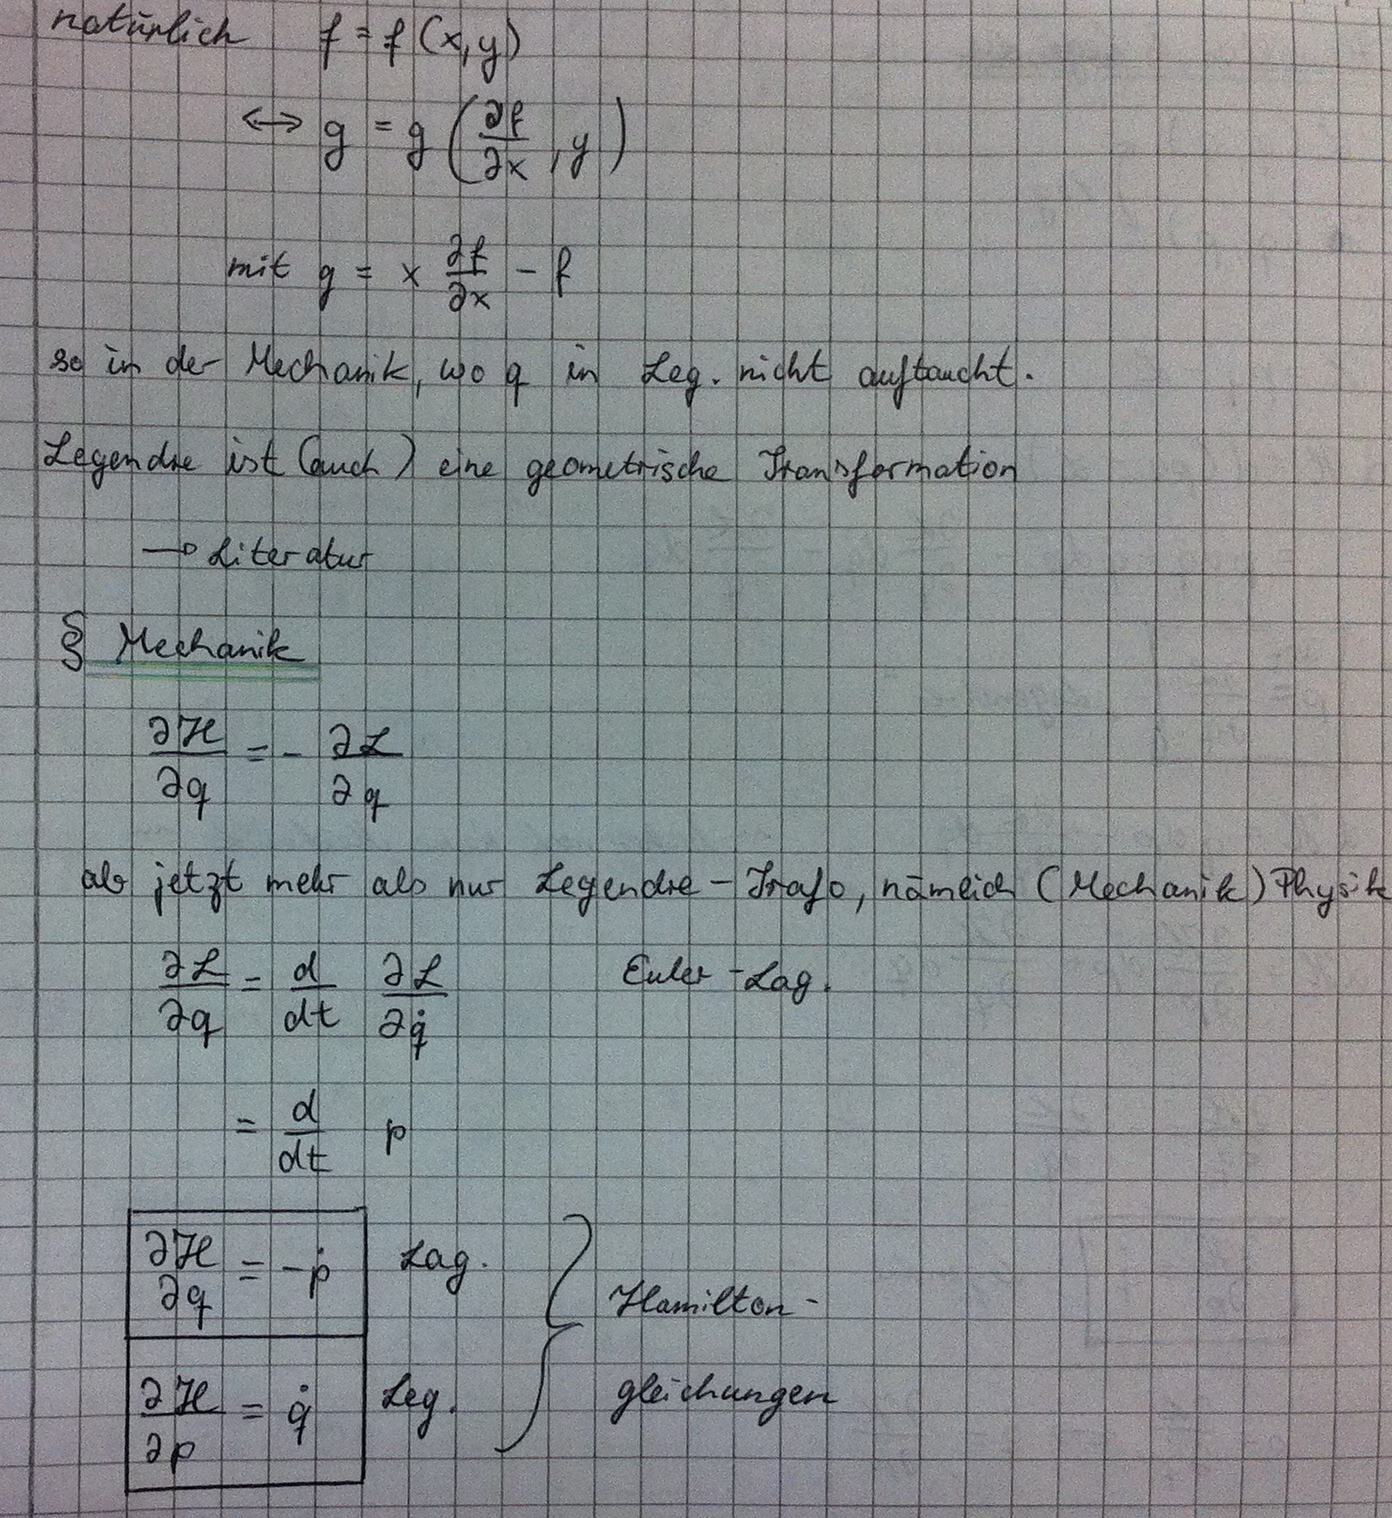 natürlich f = f(x,y)
⟷ g = g(∂f/∂x, y)
mit g = x ∂f/∂x − f
so in der Mechanik, wo q in Leg. nicht auftaucht.
Legendre ist (auch) eine geometrische Transformation
→ Literatur
§ Mechanik
∂H/∂q = − ∂L/∂q
ab jetzt mehr als nur Legendre-Trafo, nämlich (Mechanik) Physik
∂L/∂q = d/dt ∂L/∂q̇ Euler-Lag.
= d/dt p
∂H/∂q = −ṗ Lag.
Hamilton-
∂H/∂p = q̇ Leg.
gleichungen